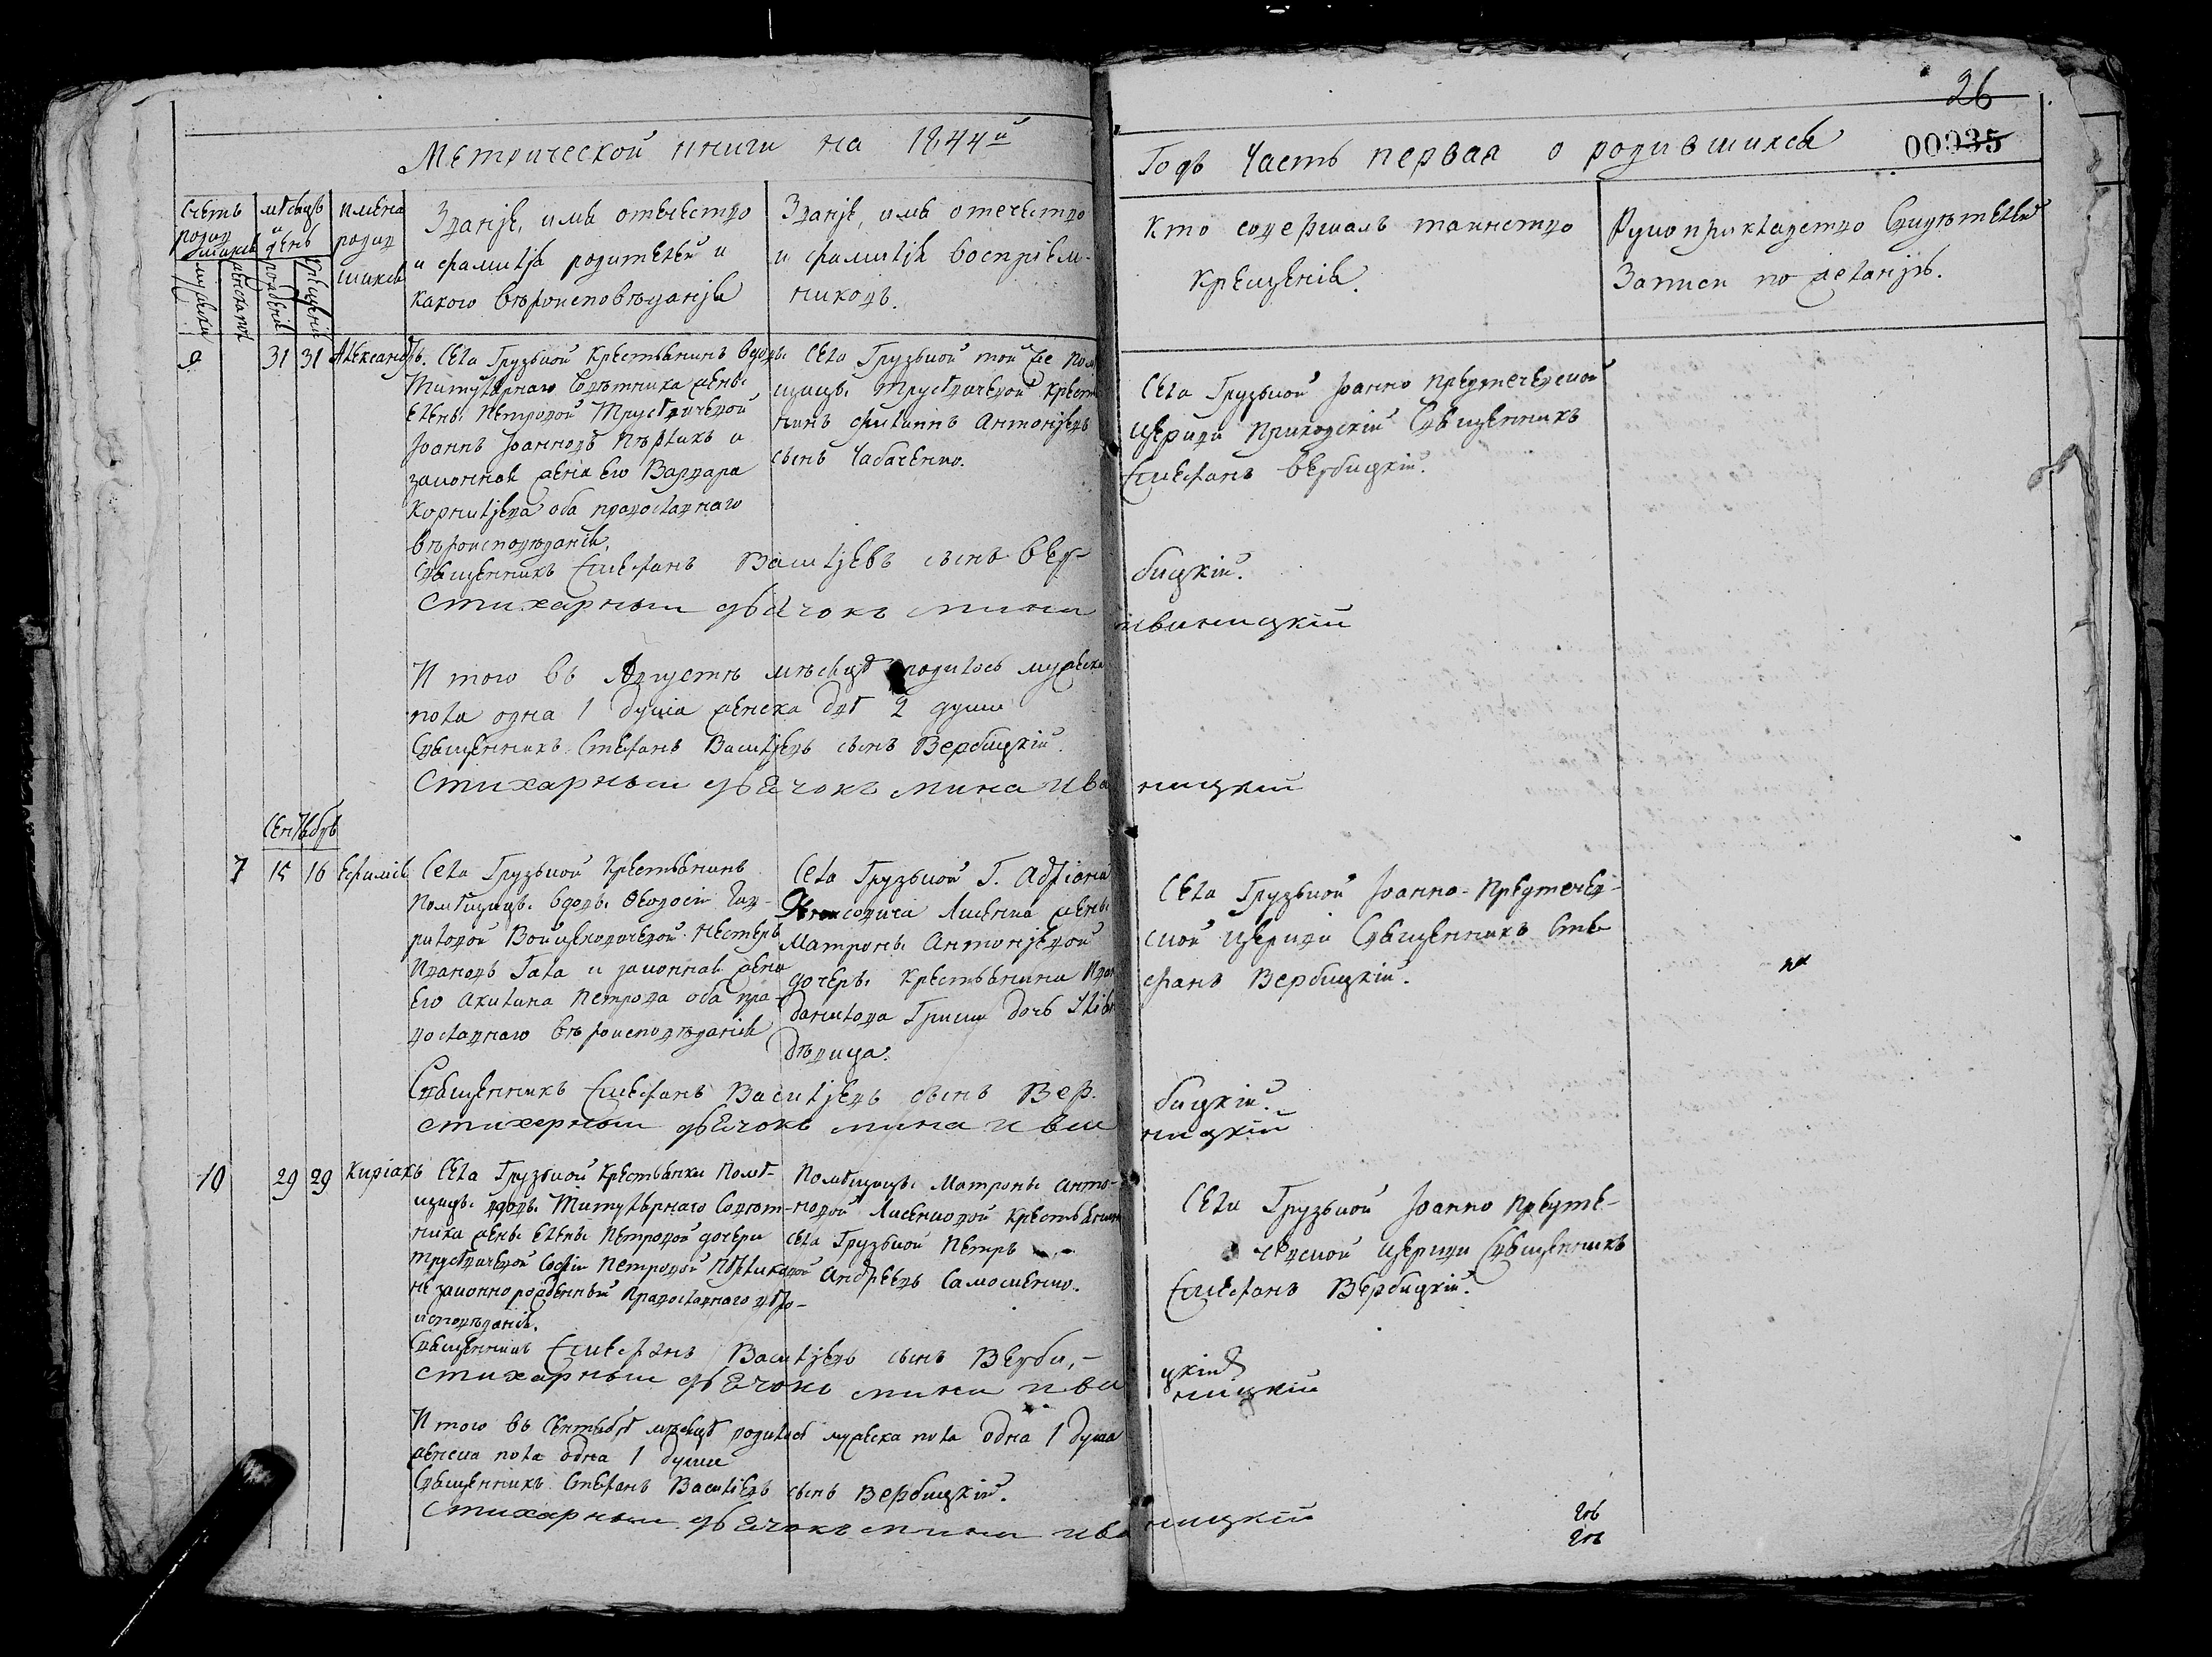 26
00035
Метрической книги на 1844й
Годъ Часть первая о родившихся
Счетъ родившихся
мѣсяцъ и день
имена родившихся
Званіе, имя отечество
и фамилія родителей и
какого вѣроисповѣданія
Званіе, имя отечество
и фамилія воспріем-
никовъ.
Кто совершалъ таинство
Крещенія.
Рукоприкладство Свидѣтелей
Записи по желанію.
мужска
женска
рожденія
крещенія
9
31 31 Александръ.
Села Грузской Крестьянинъ вдовы
Титулярнаго Совѣтника жены
Елены Петровой
Іоаннъ Іоанновъ и
законная жена его Варвара
Корнилјева оба православнаго
вѣроисповѣданія.
Села Грузской той же пом
щицы Крест
нинъ Филиппъ Антоніевъ
сынъ Чабаченко.
Села Грузской Іоанно Предтечевской
Церкви Приходскій Священникъ
Стефанъ Вербицкій.
Священникъ Стефанъ Васильевъ сынъ Вер-
бицкій.
Стихарный дьячокъ мина
ивиницкій
И того въ Августѣ мѣсяцѣ родилось мужска
пола одна 1 душа женска двѣ 2 души
Священникъ Стефанъ Васильевъ сынъ Вербицкій.
Стихарный дьячокъ мина ива
ницкій
Сентябрь
7 15 16 Ефимія
Села Грузской Крестьянинъ
Помѣщицы вдовы Феодосіи Гав-
риловой Нестеръ
Ивановъ Гала и законная жена
Его Акилина Петрова оба пра-
вославнаго вѣроисповѣданія
Села Грузской Г. Адріана
Лисенка жены
Матроны Антоніевой
дочеры Крестьянина Иван
Данилова Гриши дочь
дѣвица.
Села Грузской Іоанно-Предтечев-
ской Церкви Священникъ Сте-
фанъ Вербицкій.
Священникъ Стефанъ Васильевъ сынъ Вер.
бицкій.
стихарный дьячокъ мина ива
ницкій
10 29 29 Киріакъ
Села Грузской Крестьянки Помѣ-
щицы вдовы Титулярнаго Совѣт-
ника жены Елены Петровой дочери
Софіи Петровой
незаконнорожденный Православнаго вѣро-
исповѣданія.
Помѣщицы Матроны Анто-
новой Лисенковой Крестьянин
села Грузской Петръ
Андреевъ Самойленко.
Села Грузской Іоанно Предте-
чевской Церкви Священникъ
Стефанъ Вербицкій.
Священникъ Стефанъ Васильевъ сынъ Верби,-
цкій
стихарный дьячокъ мина ива
ницкій
И того въ Сентябрѣ мѣсяцѣ родилось мужска пола одна 1 душа
женска пола одна 1 души
Священникъ Стефанъ Васильевъ сынъ Вербицкій.
Стихарный дьячокъ мина ива
ницкій